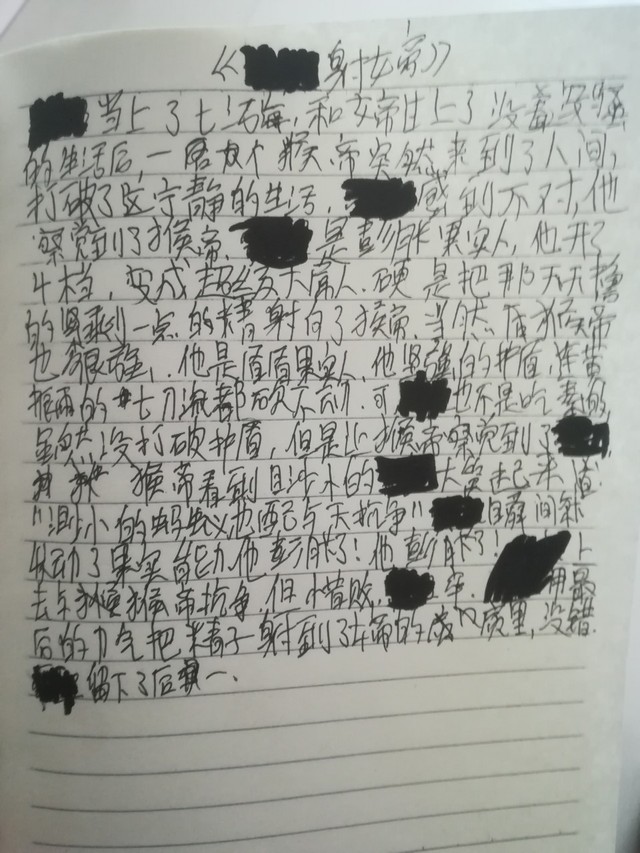 《 射女帝》
当上了七海,和女帝过上了没羞没臊
的生活后,一居,猴帝突然来到了人间,
打破了这宁静的生活. 感到不对,他
察觉到了猴帝. 是膨胀果实人,他开了
4档,变成超级大, 硬是把那
的 到一点的精射向了猴帝.当然猴帝
也很强,他是盾盾果实人,他坚强的护盾,连黄
的七刀流都砍不动.可 也不是吃素的,
虽然没打破护盾,但是让猴帝察觉到了 ,
猴帝看到 小的 大笑起来道:
"渺小的蚂蚁也配与天抗争" 瞬间
动了果实能力,他膨胀了!他膨胀了! 上
去与猴帝抗争,但惜败, 卒. 用最
后的力气把精子射到了女帝的 里,没错.
留下了后